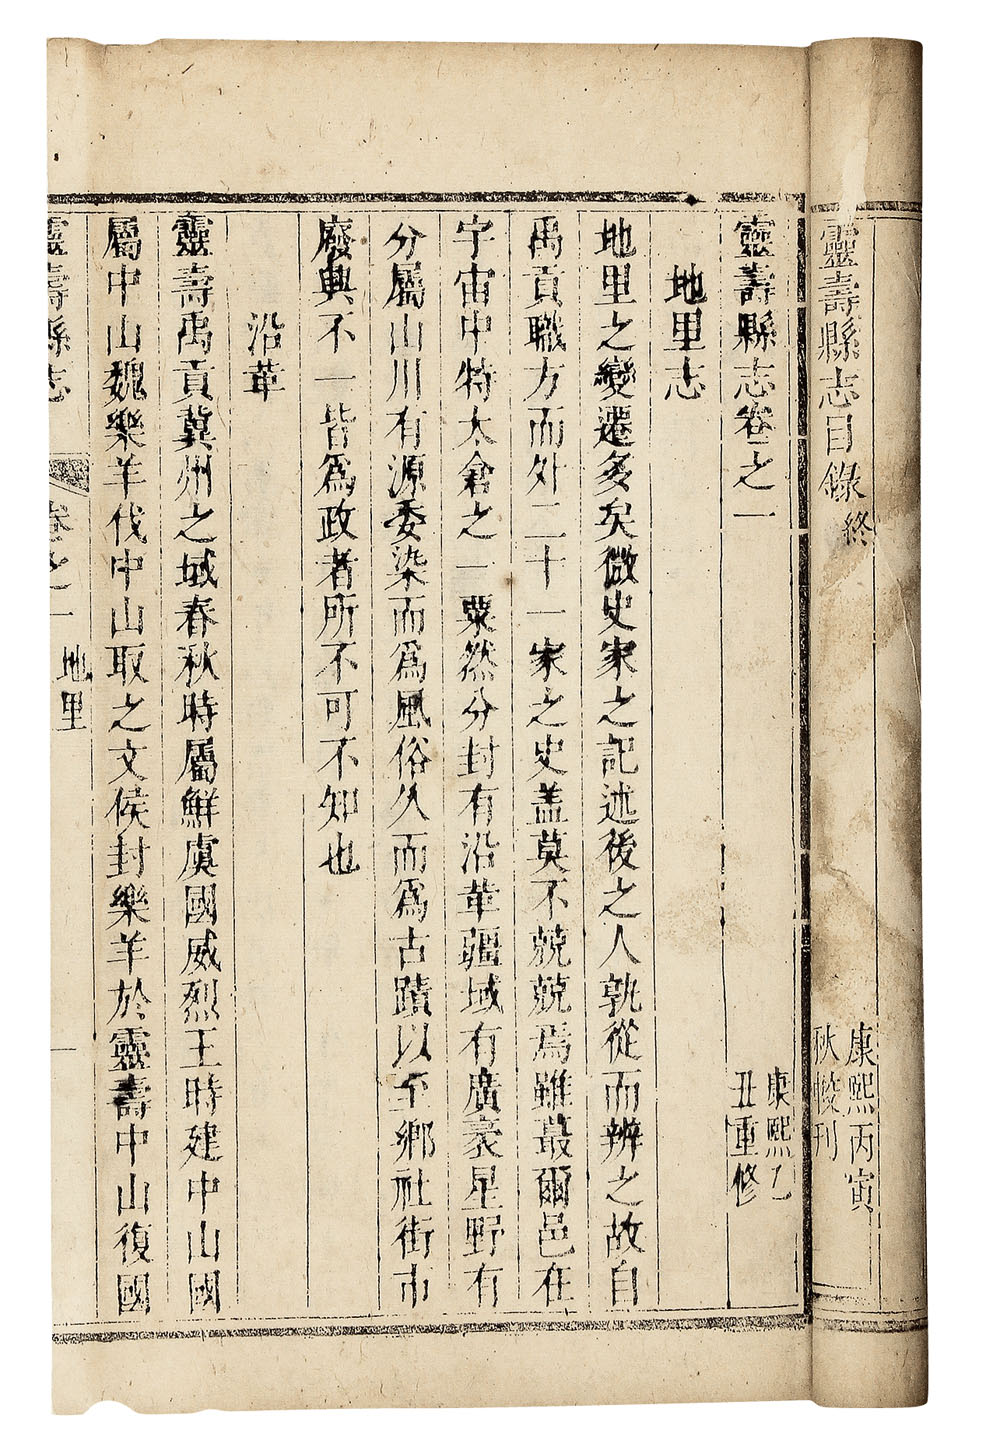 靈壽縣志目錄終
康熙丙寅
秋梭刊
靈壽縣志卷之一
康熙乙
丑重修
地里志
地里之變遷多矣微史家之記述後之人孰從而辨之故自
禹貢職方而外二十一家之史蓋莫不兢兢焉雖蕞爾邑在
宇宙中特太倉之一粟然分封有沿革疆域有廣袤星野有
分屬山川有源委染而為風俗久而為古蹟以至鄉社街市
廢興不一皆為政者所不可不知也
沿革
靈壽禹貢冀州之域春秋時屬鮮虞國威烈王時建中山國
屬中山魏樂羊伐中山取之文侯封樂羊於靈壽中山復國
靈壽縣志
卷之一
地里
一